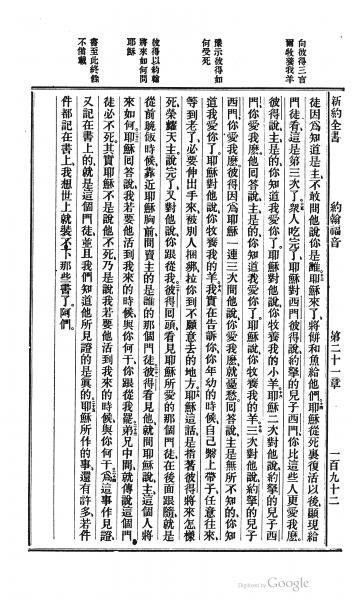 新約全書 約翰福音 第二十一章 一百九十二
向彼得三言
爾牧養我羊
示彼得如
何受死
彼得以約翰
將來如何問
耶穌
書至此終餘
不備載
徒因爲知道是主、不敢問他說你是誰。耶穌來了、將餅和魚給他們。耶穌從死裏復活以後、顯現給
門徒看、這是第三次了。衆人吃完了、耶穌對西門彼得說、約拏的兒子西門、你比這些人更愛我麽、
彼得說主是的、你知道我愛你了。耶穌對他說、你牧養我的小羊。耶穌二次對他說、約拏的兒子西
門、你愛我麽、他回答說主是的、你知道我愛你了。耶穌說、你牧養我的羊。三次對他說、約拏的兒子
西門、你愛我麽、彼得因爲耶穌一連三次問他說、你愛我麽、就憂愁回答說、主是無所不知的、你知
道我愛你了。耶穌對他說、你牧養我的羊。我實在告訴你、你年幼的時候、自己繫上帶子任意往來、
等到老了、必要伸出手來、被別人綑綁、拉你到不願意去的地方。耶穌這話、是指著彼得將來怎樣
死、榮耀天主、說完了、又對他說、你跟從我。彼得回頭、看見耶穌所愛的那個門徒、在後面跟隨、就是
從前晚飯時候、靠近耶穌胸前、問賣主的是誰的那個門徒。彼得看見他、就問耶穌說、主、這個人將
來如何、耶穌回答說、我若要他活到我來的時候、與你何干、你跟從我罷。弟兄中間就傳說這個門
徒必不死、其實耶穌不是說他不死、乃是說我若要他活到我來的時候、與你何干。爲這事作見證、
又記在書上的、就是這個門徒、並且我們知道他所見證的是眞的。耶穌所作的事、還有許多、若件
件都記在書上、我想世上就裝不下那些書了。阿們。
Digitized by Google